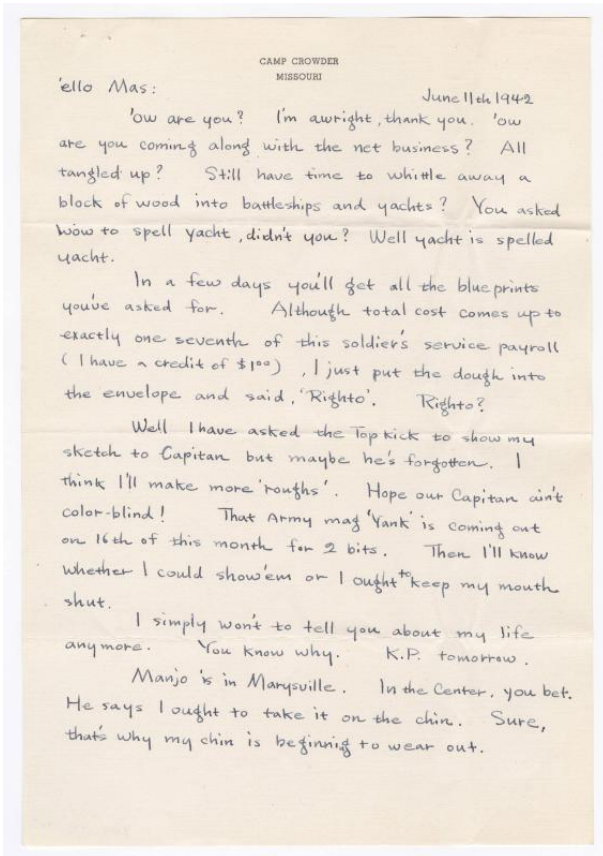 CAMP CROWDER
MISSOURI
'ello Mas:
June 11th 1942
'Ow are you? I'm awright, thank you. 'Ow
are you coming along with the net business? All
tangled up? Still have time to whittle away a
block of wood into battleships and yachts? You asked
wow to spell yacht, didn't you? Well yacht is spelled
yacht.
In a few days you'll get all the blueprints
you've asked for. Although total cost comes up to
exactly one seventh of this soldier's service payroll
(I have a credit of $1.00), I just put the dough into
the envelope and said, 'Righto'. Righto?
Well I have asked the Top Kick to show my
sketch to Capitan but maybe he's forgotten. I
think I'll make more 'roughs'. Hope our Capitan ain't
color-blind! That Army mag 'Yank' is coming out
on 16th of this month for 2 bits. Then I'll know
whether I could show'em or I ought to keep my mouth
shut.
I simply won't to tell you about my life
anymore. You know why. K.P. tomorrow.
Manjo is in Marysville. In the Center, you bet.
He says I ought to take it on the chin. Sure,
that's why my chin is beginnig to wear out.